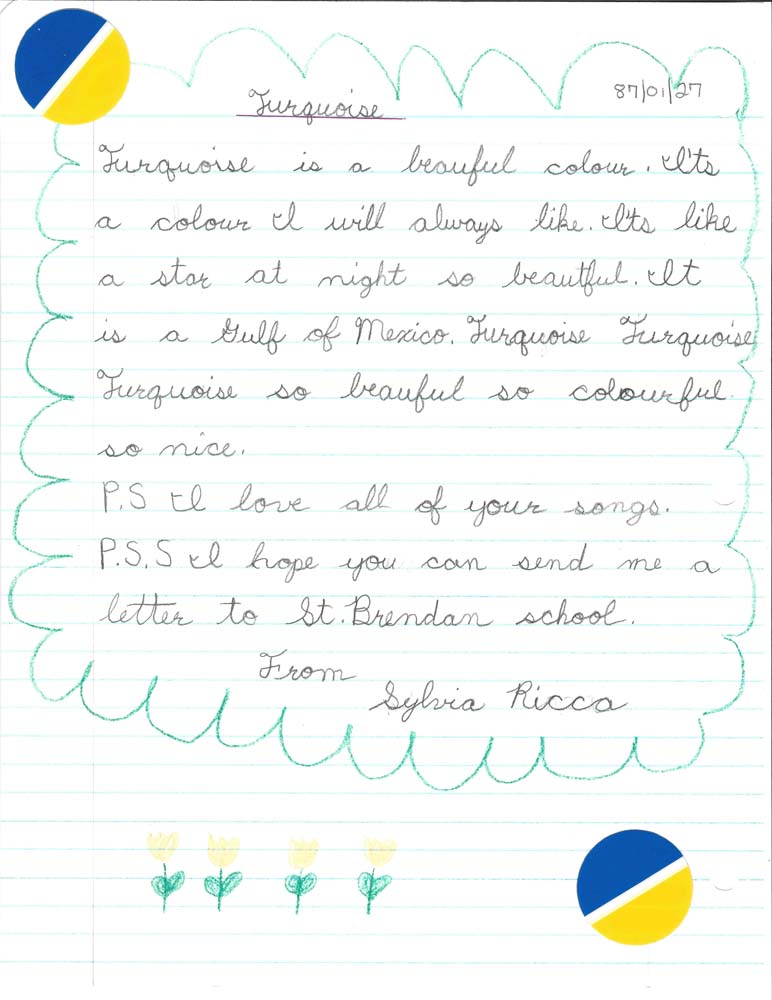 87/01/27
Turquoise
Turquoise is a beauful colour. It's
a colour I will always like. It's like
a star at night so beautful. It
is a Gulf of Mexico. Turquoise Turquoise
Turquoise so beauful so colourful
so nice.
P.S I love all of your songs.
P.S.S I hope you can send me a
letter to St. Brendan school.
From
Sylvia Ricca